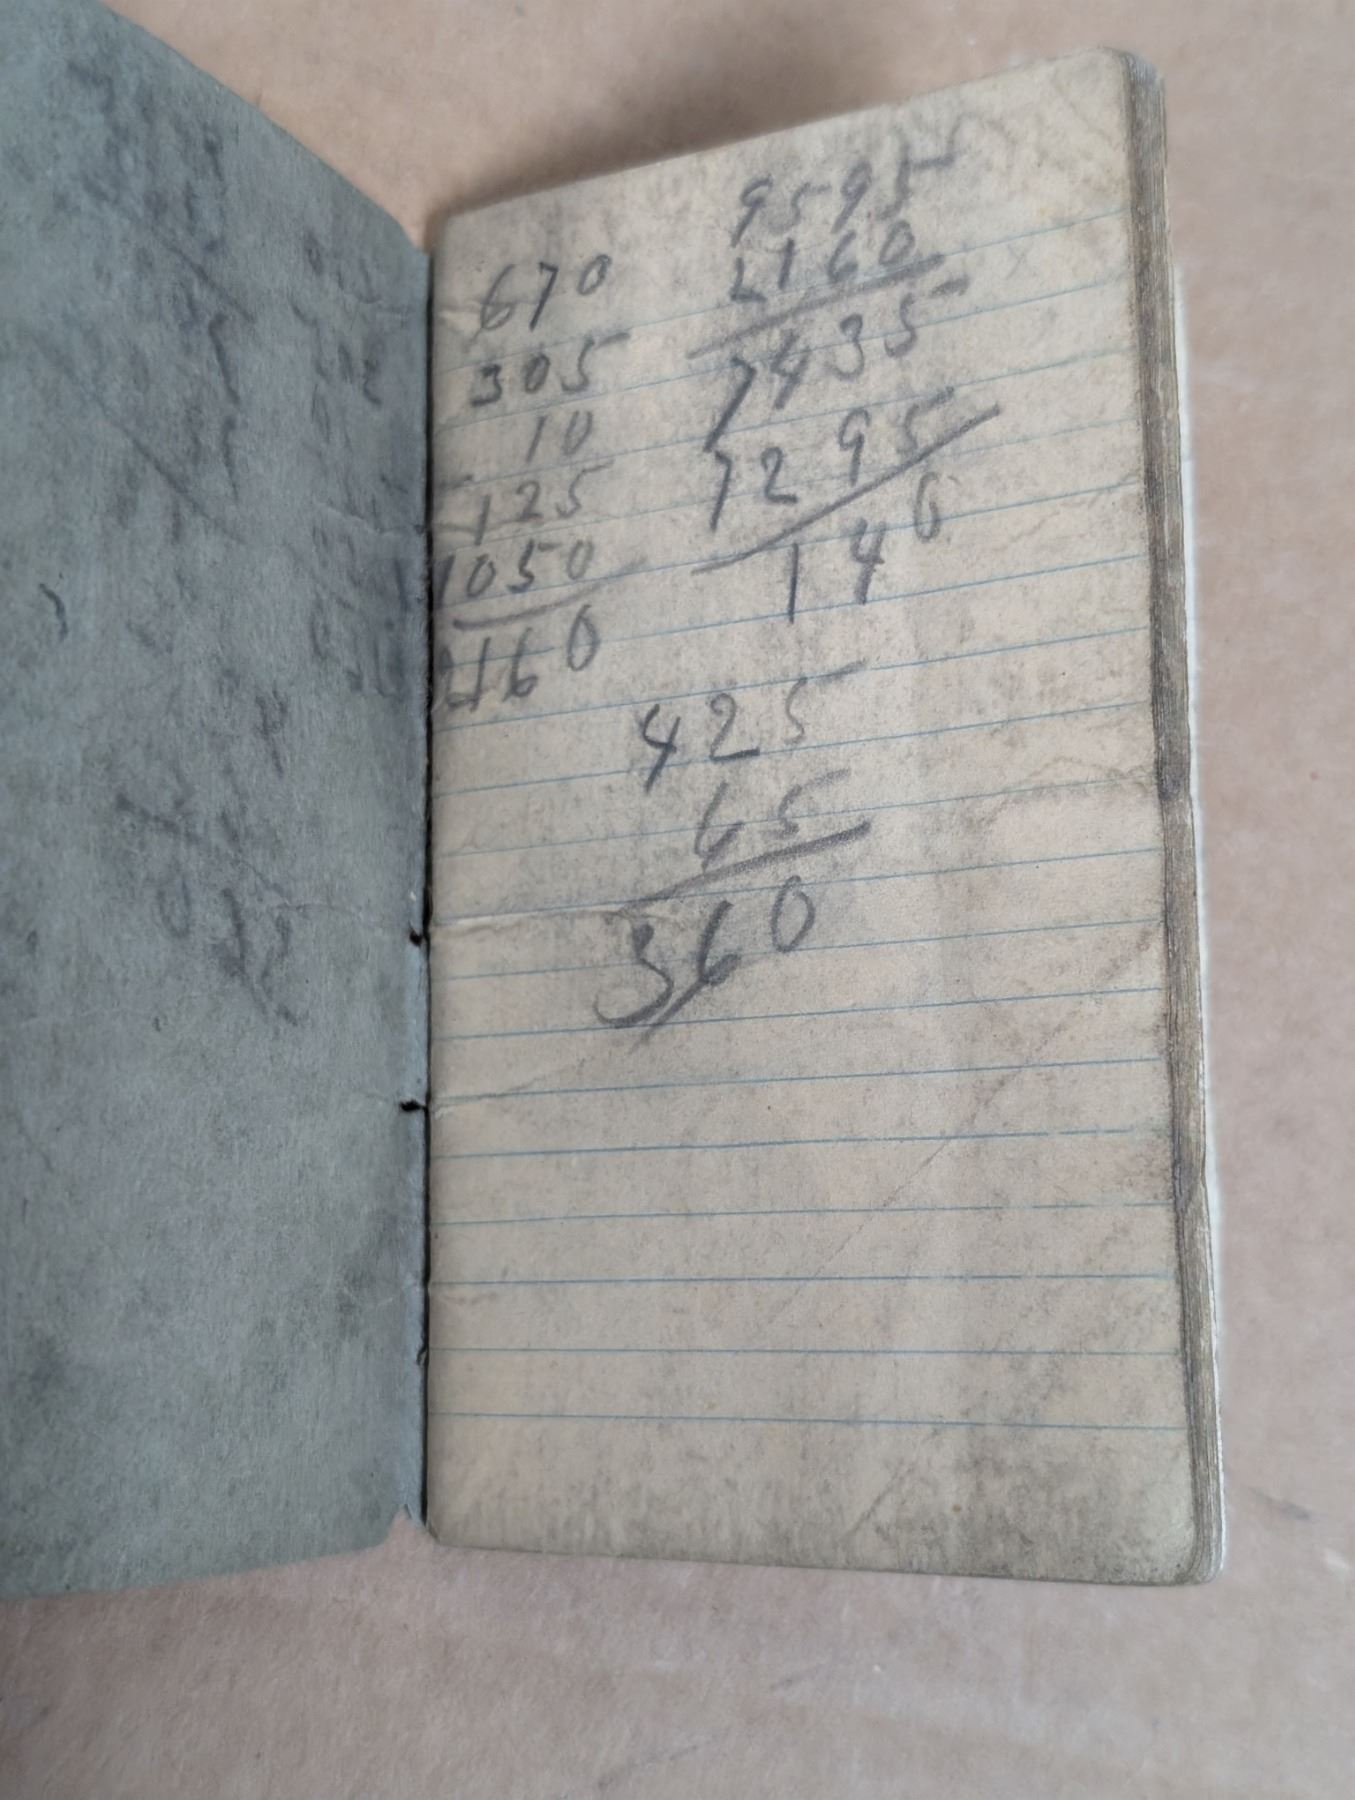 670
305
10
125
1050
2160
9595
2160
7435
7295
140
425
65
360